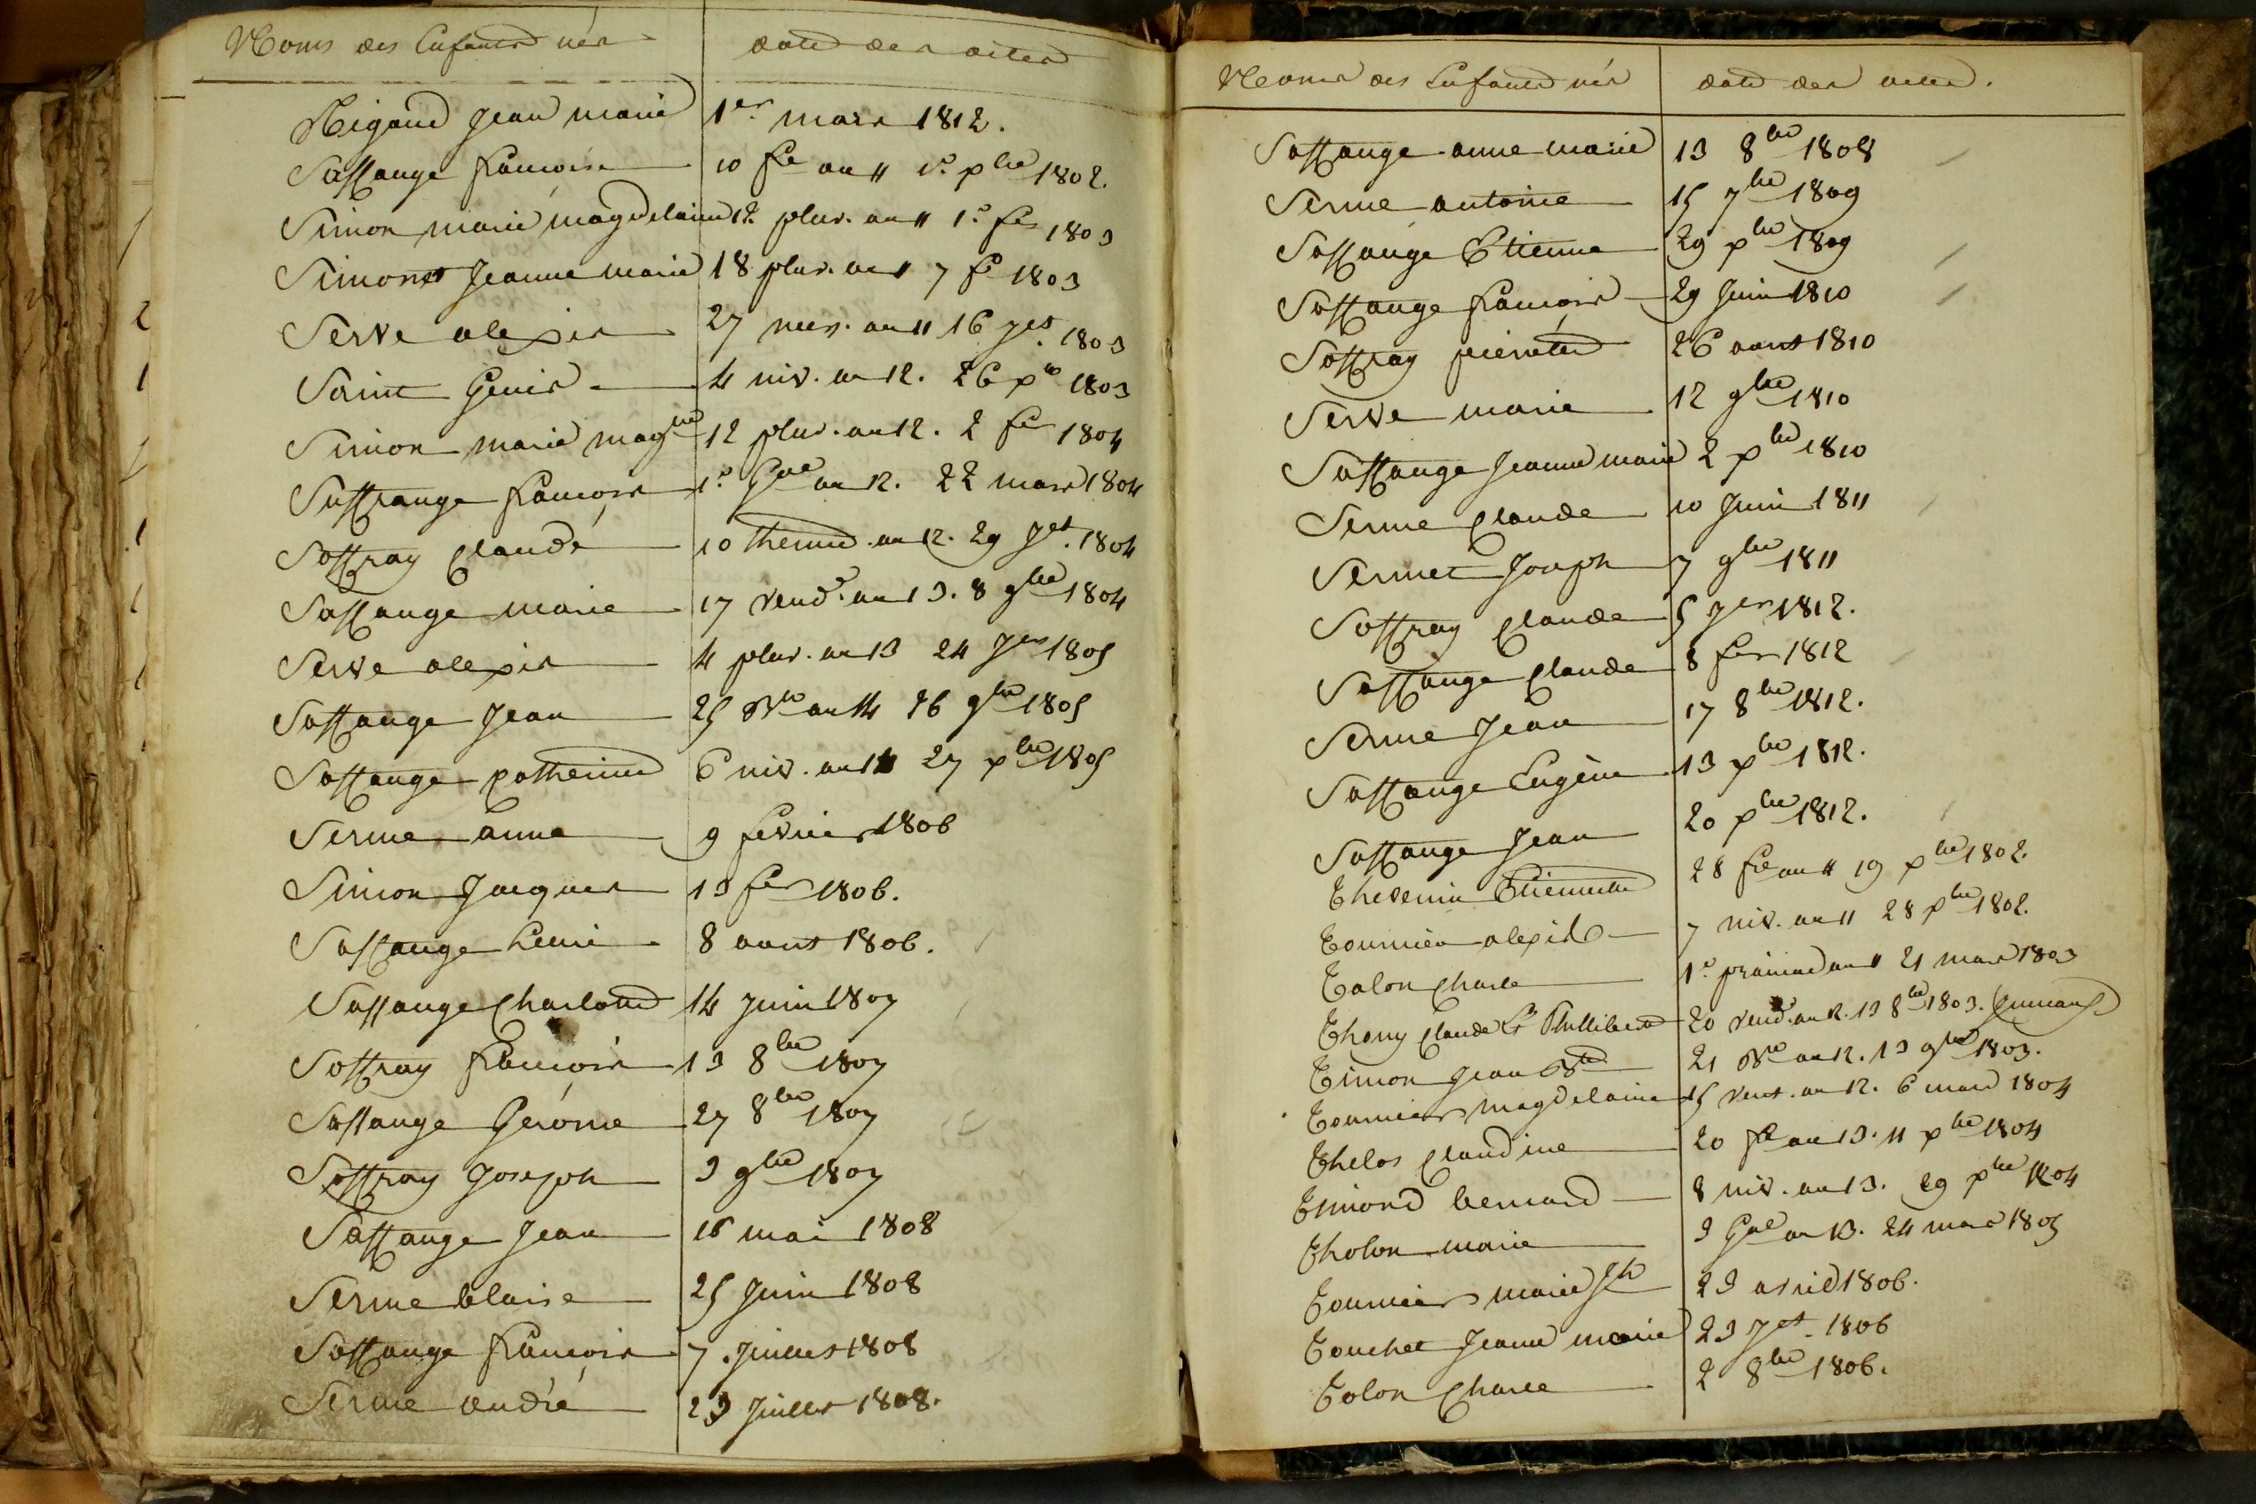 Noms des Enfants nés
date des actes
Rigaud Jean marie 1er mars 1812.
Sassange francoise 10 fre an 11 1er xbre 1802.
Simon marie magdelaine 12 pluv. an 11 1er fer 1803
Simonet Jeanne marie 18 pluv. an 11 7 fer 1803
Serve alexis 27 mes. an 11 16 Jet 1803
Saint Genis 4 niv. an 12. 26 xbre 1803
Simon marie magne 12 pluv. an 12. 2 fer 1804
Sassange francois 1er Gal an 12. 22 mars 1804
Soffray Claude 10 thermd. an 12. 29 Jet. 1804
Sassange marie 17 vend. an 13. 8 9bre 1804
Serve alexis 4 pluv. an 13 24 Jer 1805
Sassange Jean 25 Bre an 14 16 9bre 1805
Sassange Catherine 6 niv. an 14 27 xbre 1805
Serme anne 9 fevrier 1806
Simon Jacques 13 fer 1806.
Sassange henri 8 aout 1806.
Sassange Charlotte 14 Juin 1807
Soffray francois 13 8bre 1807
Sassange Gérôme 27 8bre 1807
Soffray Joseph 3 9bre 1807
Sassange Jean 16 mai 1808
Serme blaise 25 Juin 1808
Sassange francois 7 Juillet 1808
Serme andré 23 Juillet 1808.
Noms des Enfants nés
date des actes.
Sassange anne marie 13 8bre 1808
Serme antoine 15 7bre 1809
Sassange Etienne 29 xbre 1809
Sassange francois 29 Juin 1810
Soffray pierrette 26 aout 1810
Serve marie 12 9bre 1810
Sassange Jeanne marie 2 xbre 1810
Serme Claude 10 Juin 1811
Sermet Joseph 7 9bre 1811
Soffray Claude 5 Jer 1812.
Sassange Claude 8 fer 1812
Serme Jean 17 8bre 1812.
Sassange Eugène 13 xbre 1812.
Sassange Jean 20 xbre 1812.
Thevenin Etiennette 28 fre an 11 19 xbre 1802.
Tournier alexis 7 niv. an 11 28 xbre 1802.
Talon Charle 1er Gerinad an 11 21 mars 1803
Thony Claude & Phillibert 20 vend. an 12. 13 8bre 1803. Jumeaux
Timon Jean Bte 21 Bre an 12. 13 9bre 1803.
Tournier magdelaine 15 vent. an 12. 6 mars 1804
Thelos Claudine 20 fre an 13. 11 xbre 1804
Timond bernard 8 niv. an 13. 29 xbre 1804
Tholon marie 3 Gal an 13. 24 mars 1805
Tournier marie Jh 23 avril 1806.
Touchet Jeanne marie 23 Jet. 1806
Tolon Charle 2 8bre 1806.